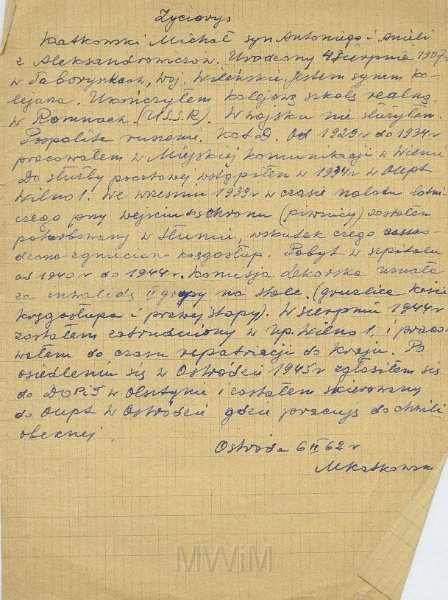 Życiorys
Katkowski Michał syn Antoniego i Anieli
z Aleksandrowiczów. Urodzony 4 sierpnia 1907 r
w Taboryszkach, woj. Wileńskie, jestem synem ko-
lejarza. Ukończyłem kolejową szkołę realną
w Romnach (U.S.S.R). W wojsku nie służyłem.
Pospolite ruszenie. Kat D. Od 1929 r do 1934 r
pracowałem w Miejskiej Komunikacji w Wilnie
Do służby pocztowej wstąpiłem w 1934 r w OUPT
Wilno 1. We wrześniu 1939 r w czasie nalotu lotni-
czego przy wejściu do schronu (piwnicy) zostałem
poturbowany w tłumie, wskutek czego
zgnieciono kręgosłup. Pobyt w szpitalu
od 1940 r do 1944 r. Komisja lekarska uznała
za inwalidę II grupy na stałe. (gruźlica kości
kręgosłupa i prawej stopy). W sierpniu 1944 r
zostałem zatrudniony w up. Wilno 1. i praco-
wałem do czasu repatriacji do kraju. Po
osiedleniu się w Ostródzie 1945 r zgłosiłem się
do DOPiT w Olsztynie i zostałem skierowany
do OUPT w Ostródzie gdzie pracuję do chwili
obecnej.
Ostróda 6 II 62 r
MKatkowski
MWiM